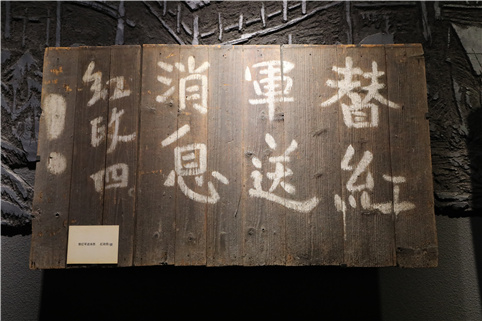 替紅
軍送
消息
！
紅政四